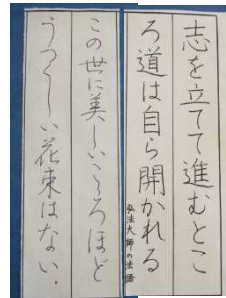 志を立てて進むとこ
ろ道は自ら開かれる
弘法大師の生涯
この世に美しいこころほど
うつくしい花束はない。